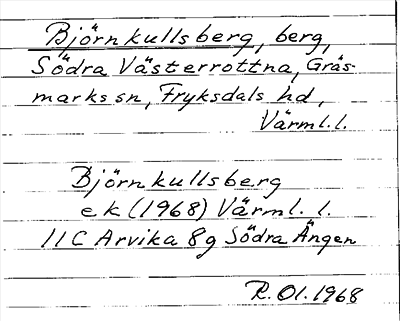 Björnkullsberg, berg,
Södra Västerrottna, Gräs-
marks sn, Fryksdals hd,
Värml.l.
Björnkullsberg
ek (1968) Värml. l.
11C Arvika 8g Södra Ängen
R. Ol. 1968